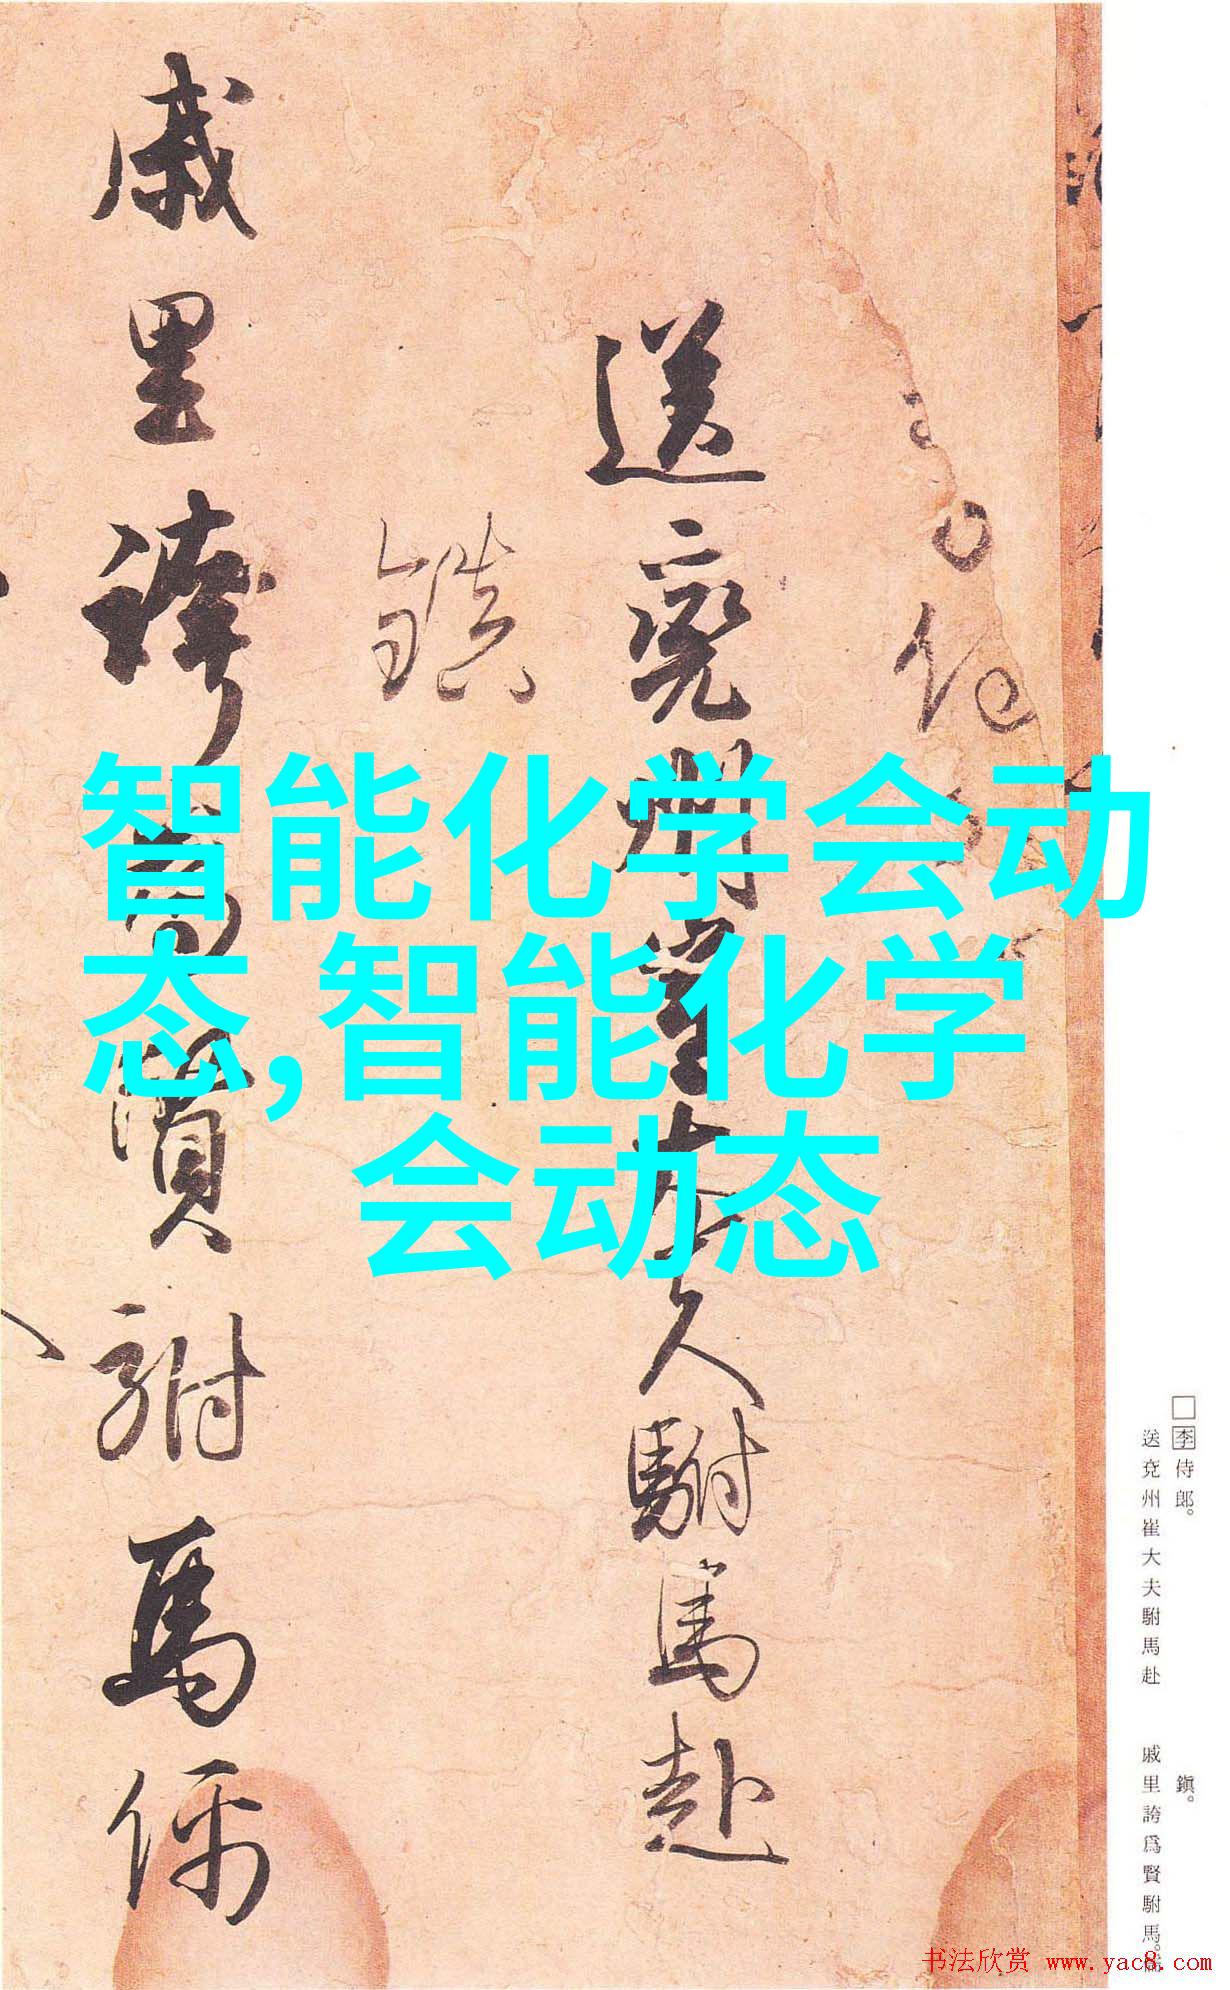 送兗州崔大夫駙馬赴
鎮
戚里誇為賢駙馬儒
智能化学会动
态,智能化学
会动态
□李侍郎。
送兗州崔大夫駙馬赴
鎮。
戚里誇爲賢駙馬。儒
书法欣赏 www.yac8.com